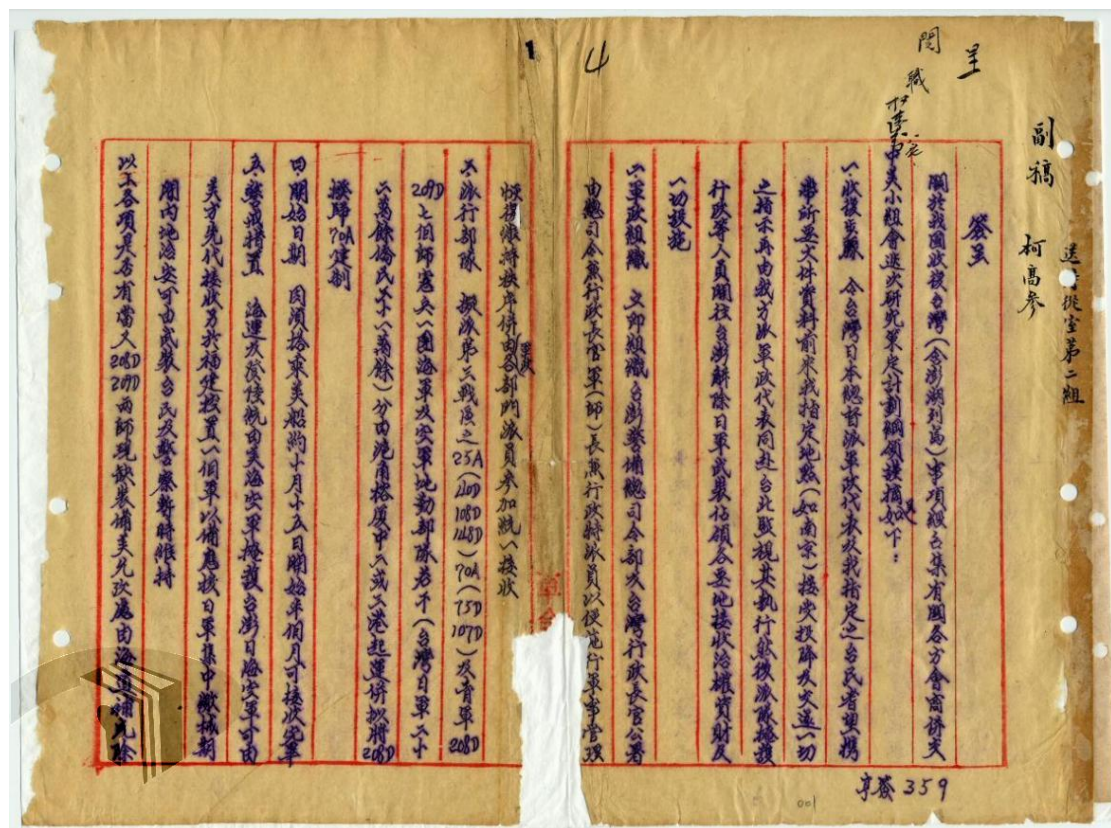 副稿
送侍從室第二組
柯高參
呈
閱
職
簽呈
關於我國收復台灣(含澎湖列島)事項經召集有關各方會商併交
中美小組會逐次研究策定計劃綱領謹摘如下:
一、收復步驟 令台灣日本總督派軍政代表及我指定之台民省坦携
帶所要文件資料前來我指定地點(如南京)接受投降及交進一切
之指示再由我方派軍政代表同赴台北監視其執行然後派隊掩護
行政等人員開往台澎解除日軍武裝佔領各要地接收治權資財及
一切設施
二、軍政組織 立即組織台澎警備總司令部及台灣行政長官公署
由總司令兼行政長官軍(師)長兼行政特派員以便施行軍事管理
俟接收後按序併由各部門派員參加統一接收
三、派行部隊 擬派第三戰區之25A(40D 108D 148D)70A(75D 107D)及青軍208D
209D七個師憲兵一團海軍及空軍地勤部隊若干(台灣日軍二十
六萬餘僑民六十八萬餘)分由滬甬格廈中之或六港起運併擬將208D
撥歸70A建制
四、開始日期 因須搭乘美船約十月十五日開始半個月可接收完畢
五、警戒措置 海運及登陸統由美海空軍掩護台澎日海空軍可由
美方先代接收另於福建控置一個軍以備應援日軍集中繳械期
間內地治安可由武裝台民及警察暫時維持
以上各項是否有當又208D 209D兩師現缺裝備美允改處由海運補充除
亨簽359
4
1
001